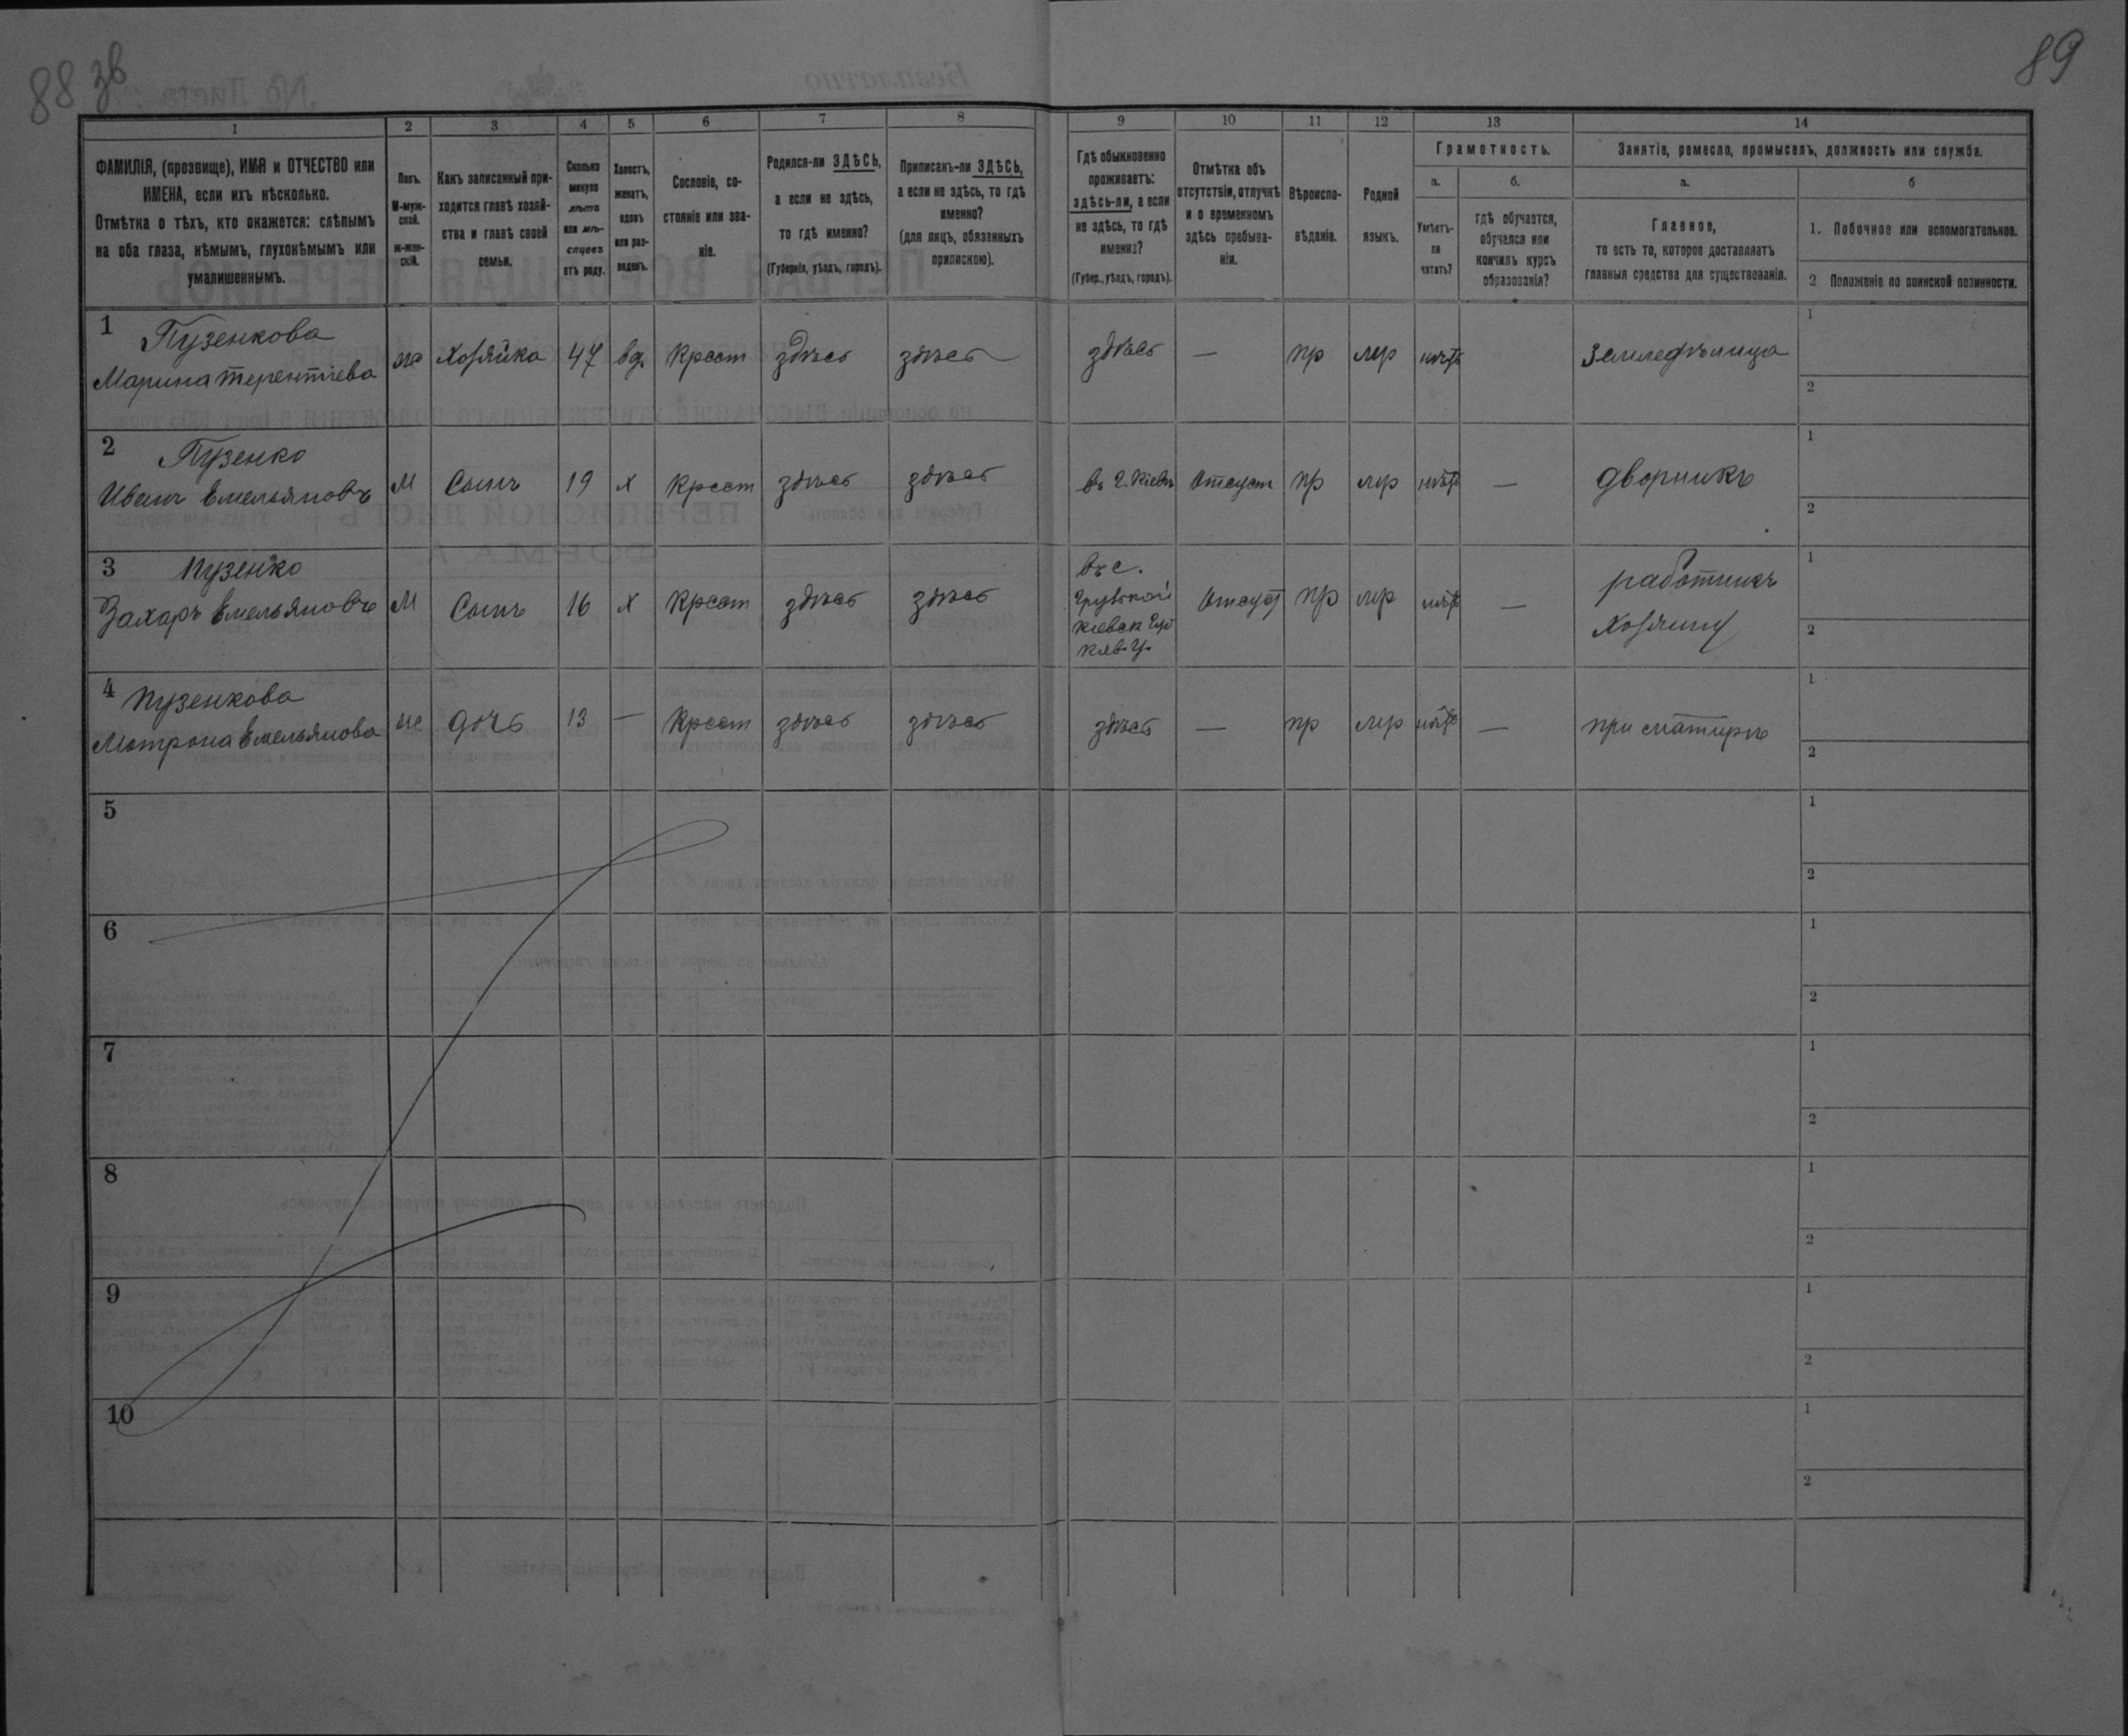 88 зв
89
1
2
3
4
5
6
7
8
9
10
11
12
13
14
ФАМИЛІЯ, (прозвище), ИМЯ и ОТЧЕСТВО или
ИМЕНА, если ихъ нѣсколько.
Отмѣтка о тѣхъ, кто окажется: слѣпымъ
на оба глаза, нѣмымъ, глухонѣмымъ или
умалишеннымъ.
Полъ.
М-муж-
ской.
ж-жен-
скій.
Какъ записанный при-
ходится главѣ хозяй-
ства и главѣ своей
семьи.
Сколько
минуло
лѣтъ
или мѣ-
сяцевъ
отъ роду.
Холостъ,
женатъ,
вдовъ
или раз-
веденъ.
Сословіе, со-
стояніе или зва-
ніе.
Родился-ли ЗДѢСЬ,
а если не здѣсь,
то гдѣ именно?
(Губернія, уѣздъ, городъ).
Приписанъ-ли ЗДѢСЬ,
а если не здѣсь, то гдѣ
именно?
(для лицъ, обязанныхъ
припискою).
Гдѣ обыкновенно
проживаетъ:
здѣсь-ли, а если
не здѣсь, то гдѣ
именно?
(Губер., уѣздъ, городъ).
Отмѣтка объ
отсутствіи, отлучкѣ
и о временномъ
здѣсь пребыва-
ніи.
Вѣроиспо-
вѣданіе.
Родной
языкъ.
Грамотность.
а.
Умѣетъ-
ли
читать?
б.
гдѣ обучается,
обучался или
кончилъ курсъ
образованія?
Занятіе, ремесло, промыселъ, должность или служба.
а.
Главное,
то есть то, которое доставляетъ
главныя средства для существованія.
б
1. Побочное или вспомогательное.
2 Положеніе по воинской повинности.
1 Пузенкова
Марина Терентіева
ж Хозяйка 47 вд. Крест здѣсь здѣсь здѣсь — пр мр нѣтъ земледѣлица
1
2
2 Пузенко
Иванъ Емельяновъ
М Сынъ 19 х Крест здѣсь здѣсь въ г. Кіевѣ Отсут пр мр нѣтъ — дворникъ
1
2
3 Пузенко
Захаръ Емельяновъ
М Сынъ 16 х Крест здѣсь здѣсь
въ с.
Кіевск Губ
Отсут пр мр нѣтъ —
работникъ
1
2
4 Пузенкова
Мотрона Емельянова
ж дочь 13 — Крест здѣсь здѣсь здѣсь — пр мр нѣтъ — при матери
1
2
5
1
2
6
1
2
7
1
2
8
1
2
9
1
2
10
1
2